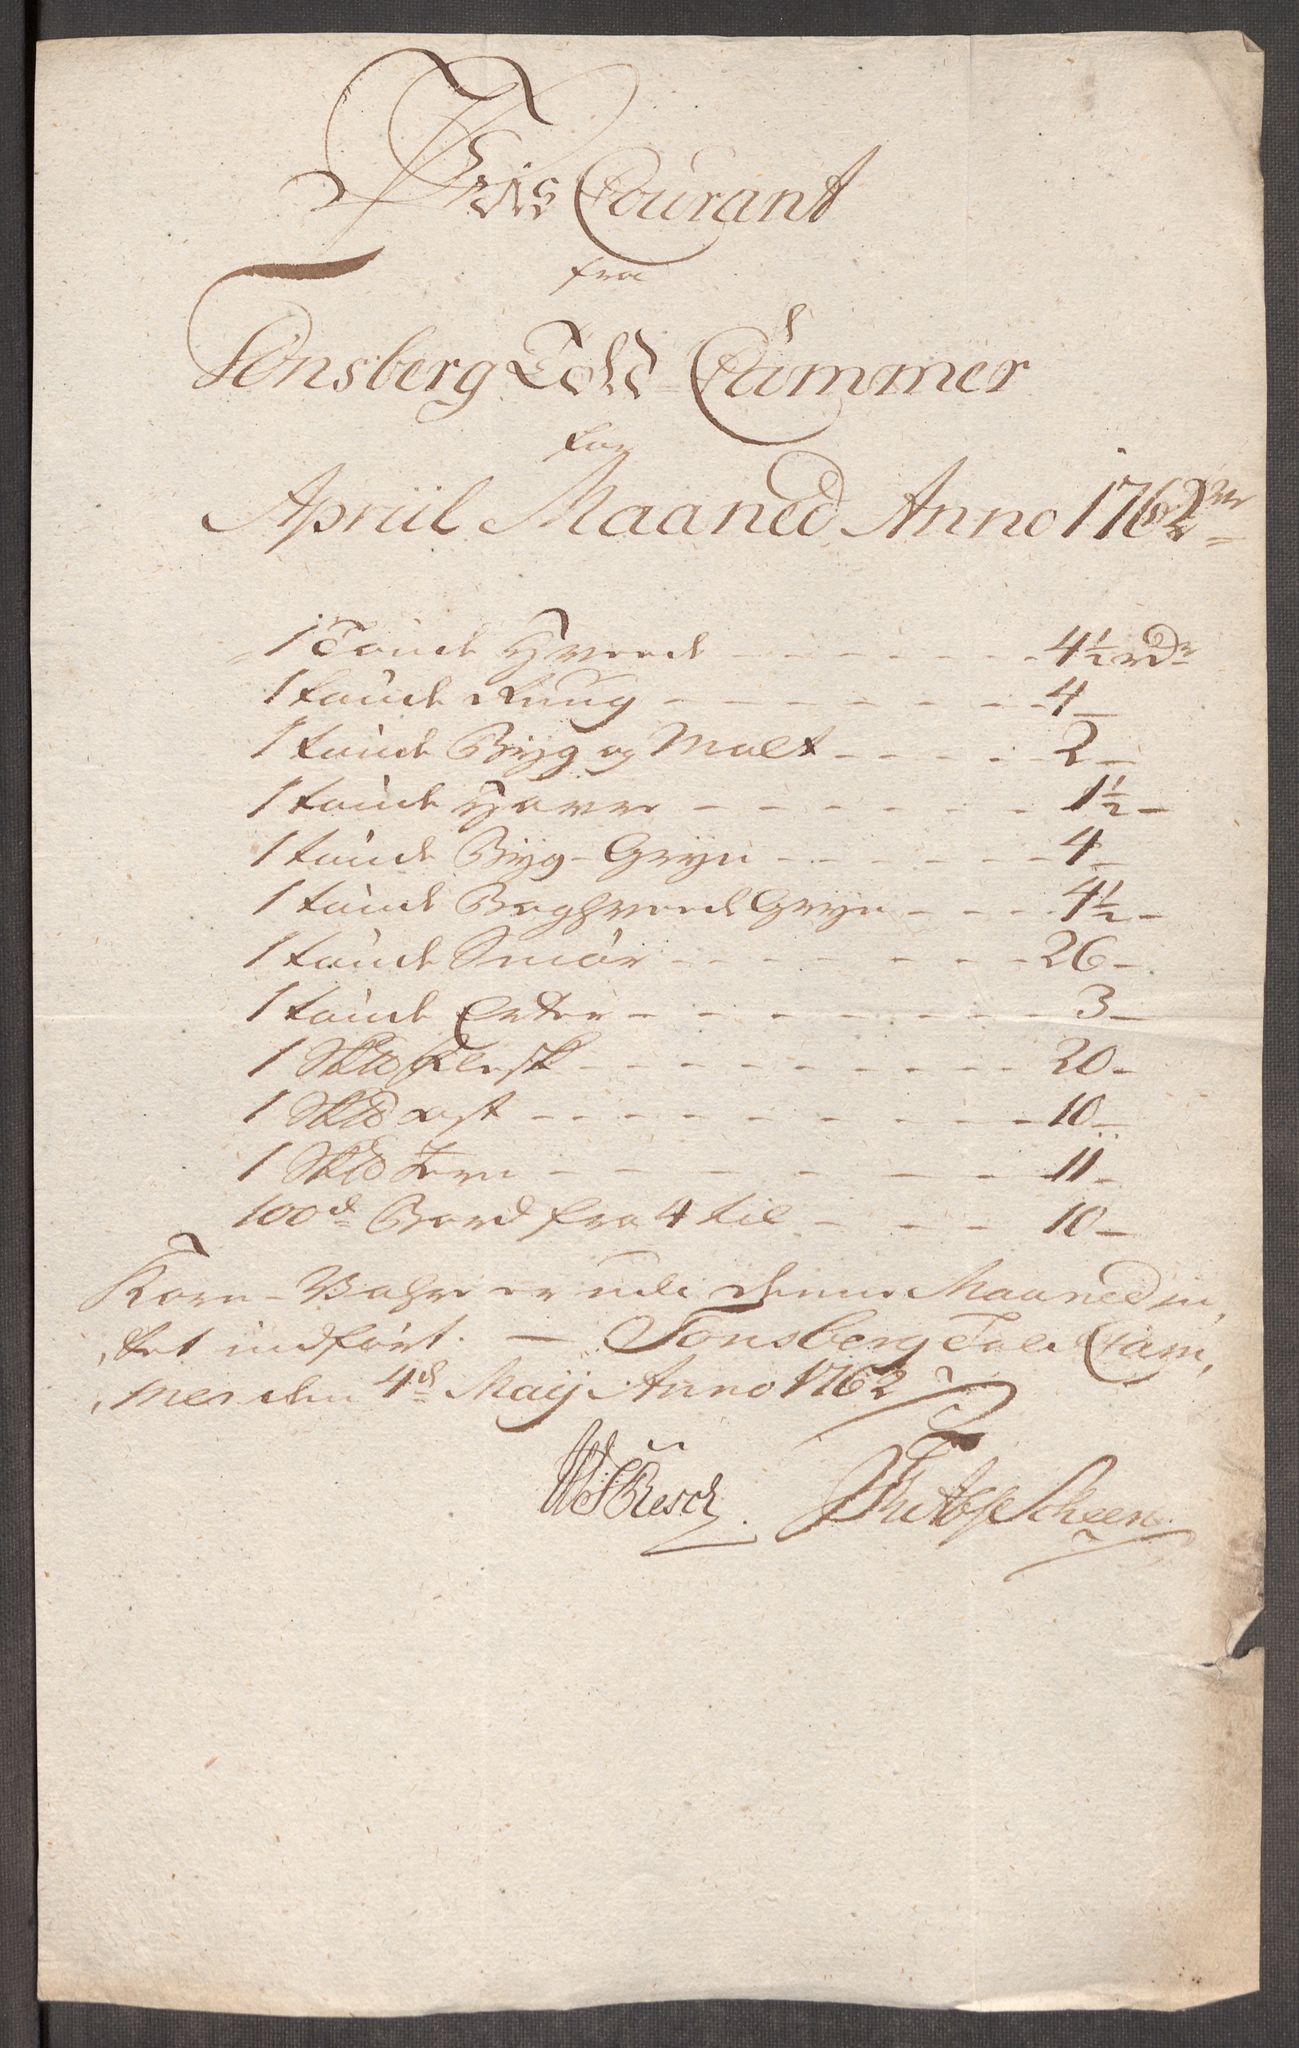 Priis Courant
fra
Tønsberg Told-Cammer
for
Apriil Maaned Anno 1762
1 Tønde Hvede - - - - - - 4½ rdr
1 tønde Ruug - - - - - - - 4 -
1 tønde Byg og Malt - - - - 2 -
1 tønde Havre - - - - - - - 1½ -
1 tønde Byg-Gryn - - - - - - 4 -
1 tønde Boghvede Gryn - - - - 4½ -
1 tønde Smør - - - - - - - 26 -
1 tønde Erter - - - - - - - - 3 -
1 Skd Flesk - - - - - - - - - 20 -
1 Skd ost - - - - - - - - - 10 -
1 Skd Jern - - - - - - - 11 -
100de Bord fra 4 til - - - - 10 -
Korn-Vahre er udi denne Maaned in,
,tet indført. — Tønsberg Told Cam,
,mer den 4de Maij Anno 1762
Resch Scheen